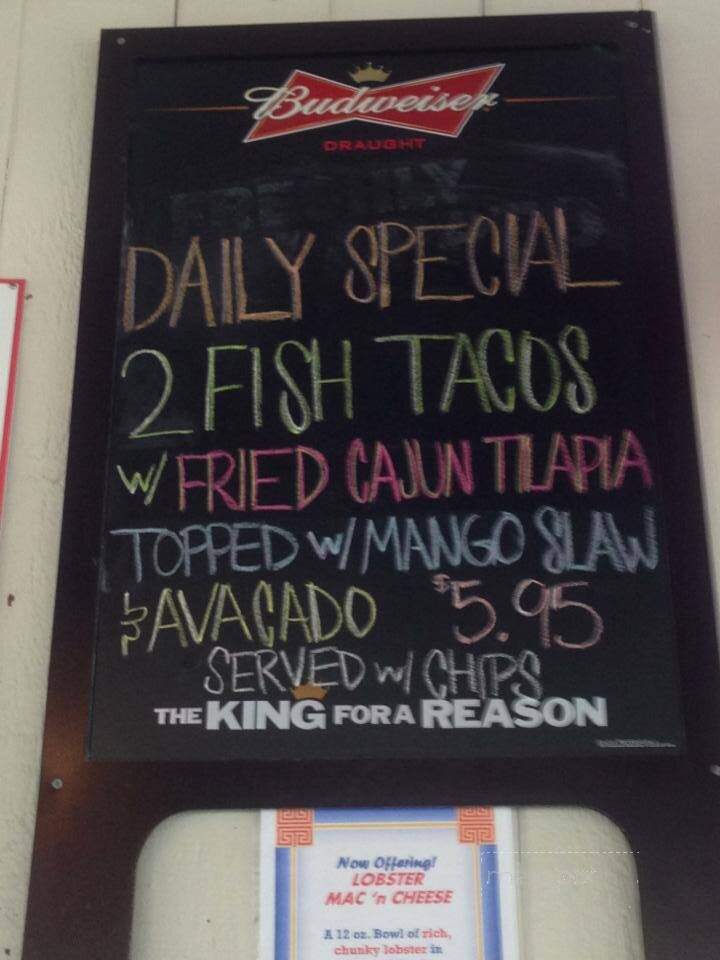 Budweiser
DRAUGHT
DAILY SPECIAL
2 FISH TACOS
w/ FRIED CAJUN TILAPIA
TOPPED w/ MANGO SLAW
& AVACADO $5.95
SERVED w/ CHIPS
THE KING FOR A REASON
Now Offering!
LOBSTER
MAC 'n CHEESE
A 12 oz. Bowl of rich,
chunky lobster in